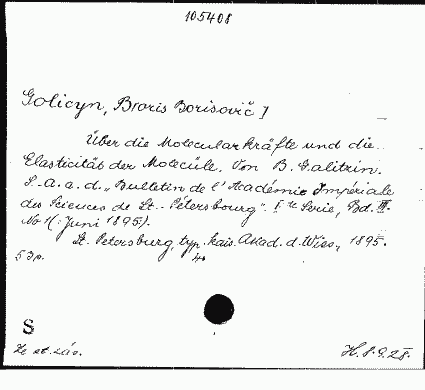 105408
Golicyn, Boris Borisovič]
Über die Molecularkräfte und die
Elasticität der Molecüle. Von B. Galitzin.
S.-a. a. d. „Bulletin de l'Académie Impériale
des Sciences de St.-Pétersbourg". Ve Serie, Bd. III.
No 1 (: Juni 1895).
St. Petersburg, typ. kais. Akad. d. Wiss., 1895.
53 p. 4o
S
H. 8.9.28.